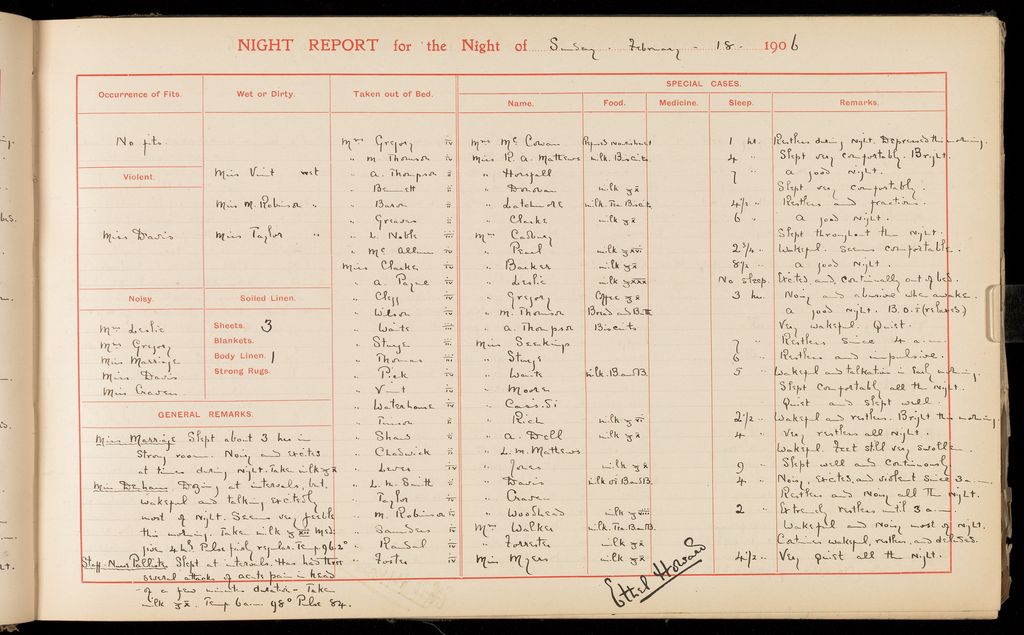 NIGHT REPORT for the Night of Sunday. February - 18. 1906
SPECIAL CASES.
Occurrence of Fits. Wet or Dirty. Taken out of Bed. Name. Food. Medicine. Sleep. Remarks.
No fits
Violent.
Miss Davis
Noisy.
Mrs Leslie
Mrs Gregory
Miss Marriage
Miss Davis
Miss Craven
Miss Vint wet
Miss M. Robinson "
Miss Taylor "
Soiled Linen.
Sheets. 3
Blankets.
Body Linen. 1
Strong Rugs.
GENERAL REMARKS.
Miss Marriage Slept about 3 hrs in
strong room. Noisy and excited
at times during night. Taken milk ℥x
Miss Denham. Dozing at intervals, but
wakeful and talking excitedly
most of night. Seems very feeble
this morning. Taken milk
given 4 hrs. Pulse fairly regular. Temp 96.2°
Staff Nurse Slept at intervals. Has had three
several attacks of acute pain in head
- of a few minutes duration - Taken
milk ℥x. Temp 6 a.m. 98° Pulse 84.
Mrs Gregory iv
" M. Thomson iv
" A. Thompson ii
" Bennett ii
" Baron ii
" Greaves ii
" L. Noble iii
" McAllum iv
Miss Clarke iv
" A. Payne ii
" Clegg iv
" Wilson iv
" Waite iii
" Stuge iii
" Thomas iii
" Pick iv
" Vint iv
" Waterhouse iv
" Tunson ii
" Shaw ii
" Chadwick ii
" Lewes iv
" L. M. Smith ii
" Taylor iv
" M. Robinson iv
" Saunders iv
" Randal iv
" Foster iv
Mrs McCowan Refused nourishment 1 hr. Restless during night. Depressed this morning.
Miss R. A. Mathews milk. Biscuits 4 " Slept very comfortably. Bright.
" Horsfall 7 " A good night.
" Donovan milk ℥x Slept very comfortably.
" Latchmore milk. Tea. Biscuits 4½ " Restless and fractious.
" Clarke milk ℥x 6 " A good night.
Mrs Cadbury Slept throughout the night.
" Pearl milk ℥xvi 2¾ " Wakeful. Seems comfortable.
" Barker milk ℥x 8½ " A good night.
" Leslie milk ℥xxx No sleep. Excited, and continually out of bed.
" Gregory Coffee ℥x 3 hrs. Noisy and abusive when awake.
" M. Thomson Bread and Butter A good night. B.O.T (relaxed)
" A. Thompson Biscuits Very wakeful. Quiet.
Miss Seekings 7 " Restless since 4 a.m.
" Stuge 6 " Restless and impulsive.
" Waite milk. B and B. 5 Wakeful and talkative in early morning.
" Moore Slept comfortably all the night.
" Quiet and slept well.
" Rich milk ℥vi 2½ " Wakeful and restless. Bright this morning.
" A. Dell milk ℥x 4 " Very restless all night.
" L. M. Mathews Wakeful. Feet still very swollen.
" Jones milk ℥x 9 " Slept well and continuously
" Davis milk B and B. 4 " Noisy, excited, and violent since 3 a.m.
" Craven Restless and noisy all the night.
" Woodhead milk 2 " Extremely restless until 3 a.m.
Mrs Walker milk. Tea. B and B. Wakeful and noisy most of night.
" Forrester milk ℥x Continues wakeful, restless, and deluded.
Miss Myers milk ℥x 4½ " Very quiet all the night.
Ethel Howard